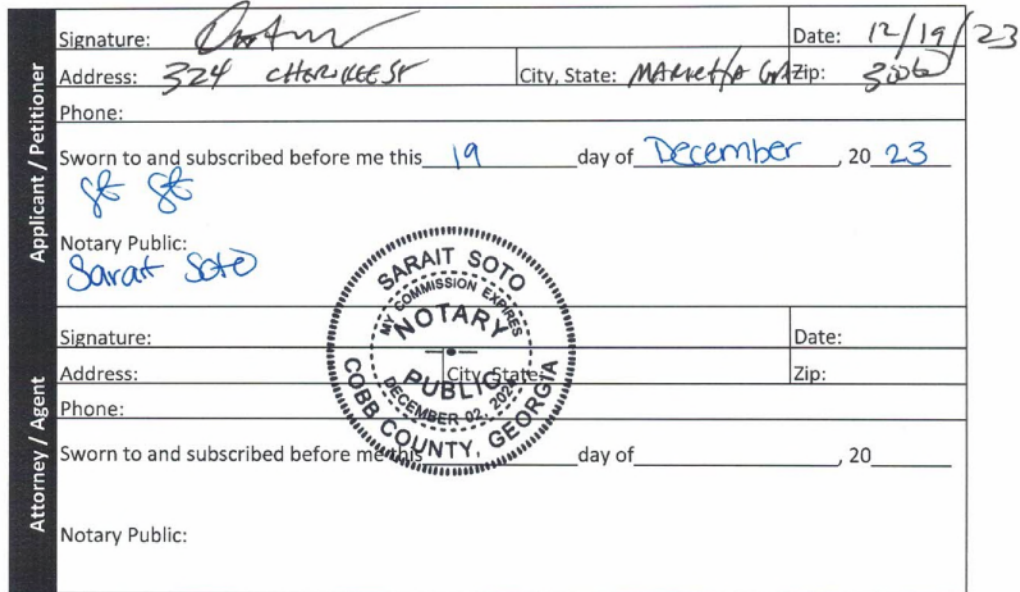 Applicant / Petitioner
Signature:
Date: 12/19/23
Address: 324 CHEROKEE ST City, State: MARIETTA GA Zip:
Phone:
Sworn to and subscribed before me this 19 day of December, 20 23
Notary Public:
Sarait Soto
SARAIT SOTO
MY COMMISSION EXPIRES
NOTARY
PUBLIC
DECEMBER 02,
COBB COUNTY, GEORGIA
Attorney / Agent
Signature: Date:
Address: City, State: Zip:
Phone:
Sworn to and subscribed before me this day of , 20
Notary Public: